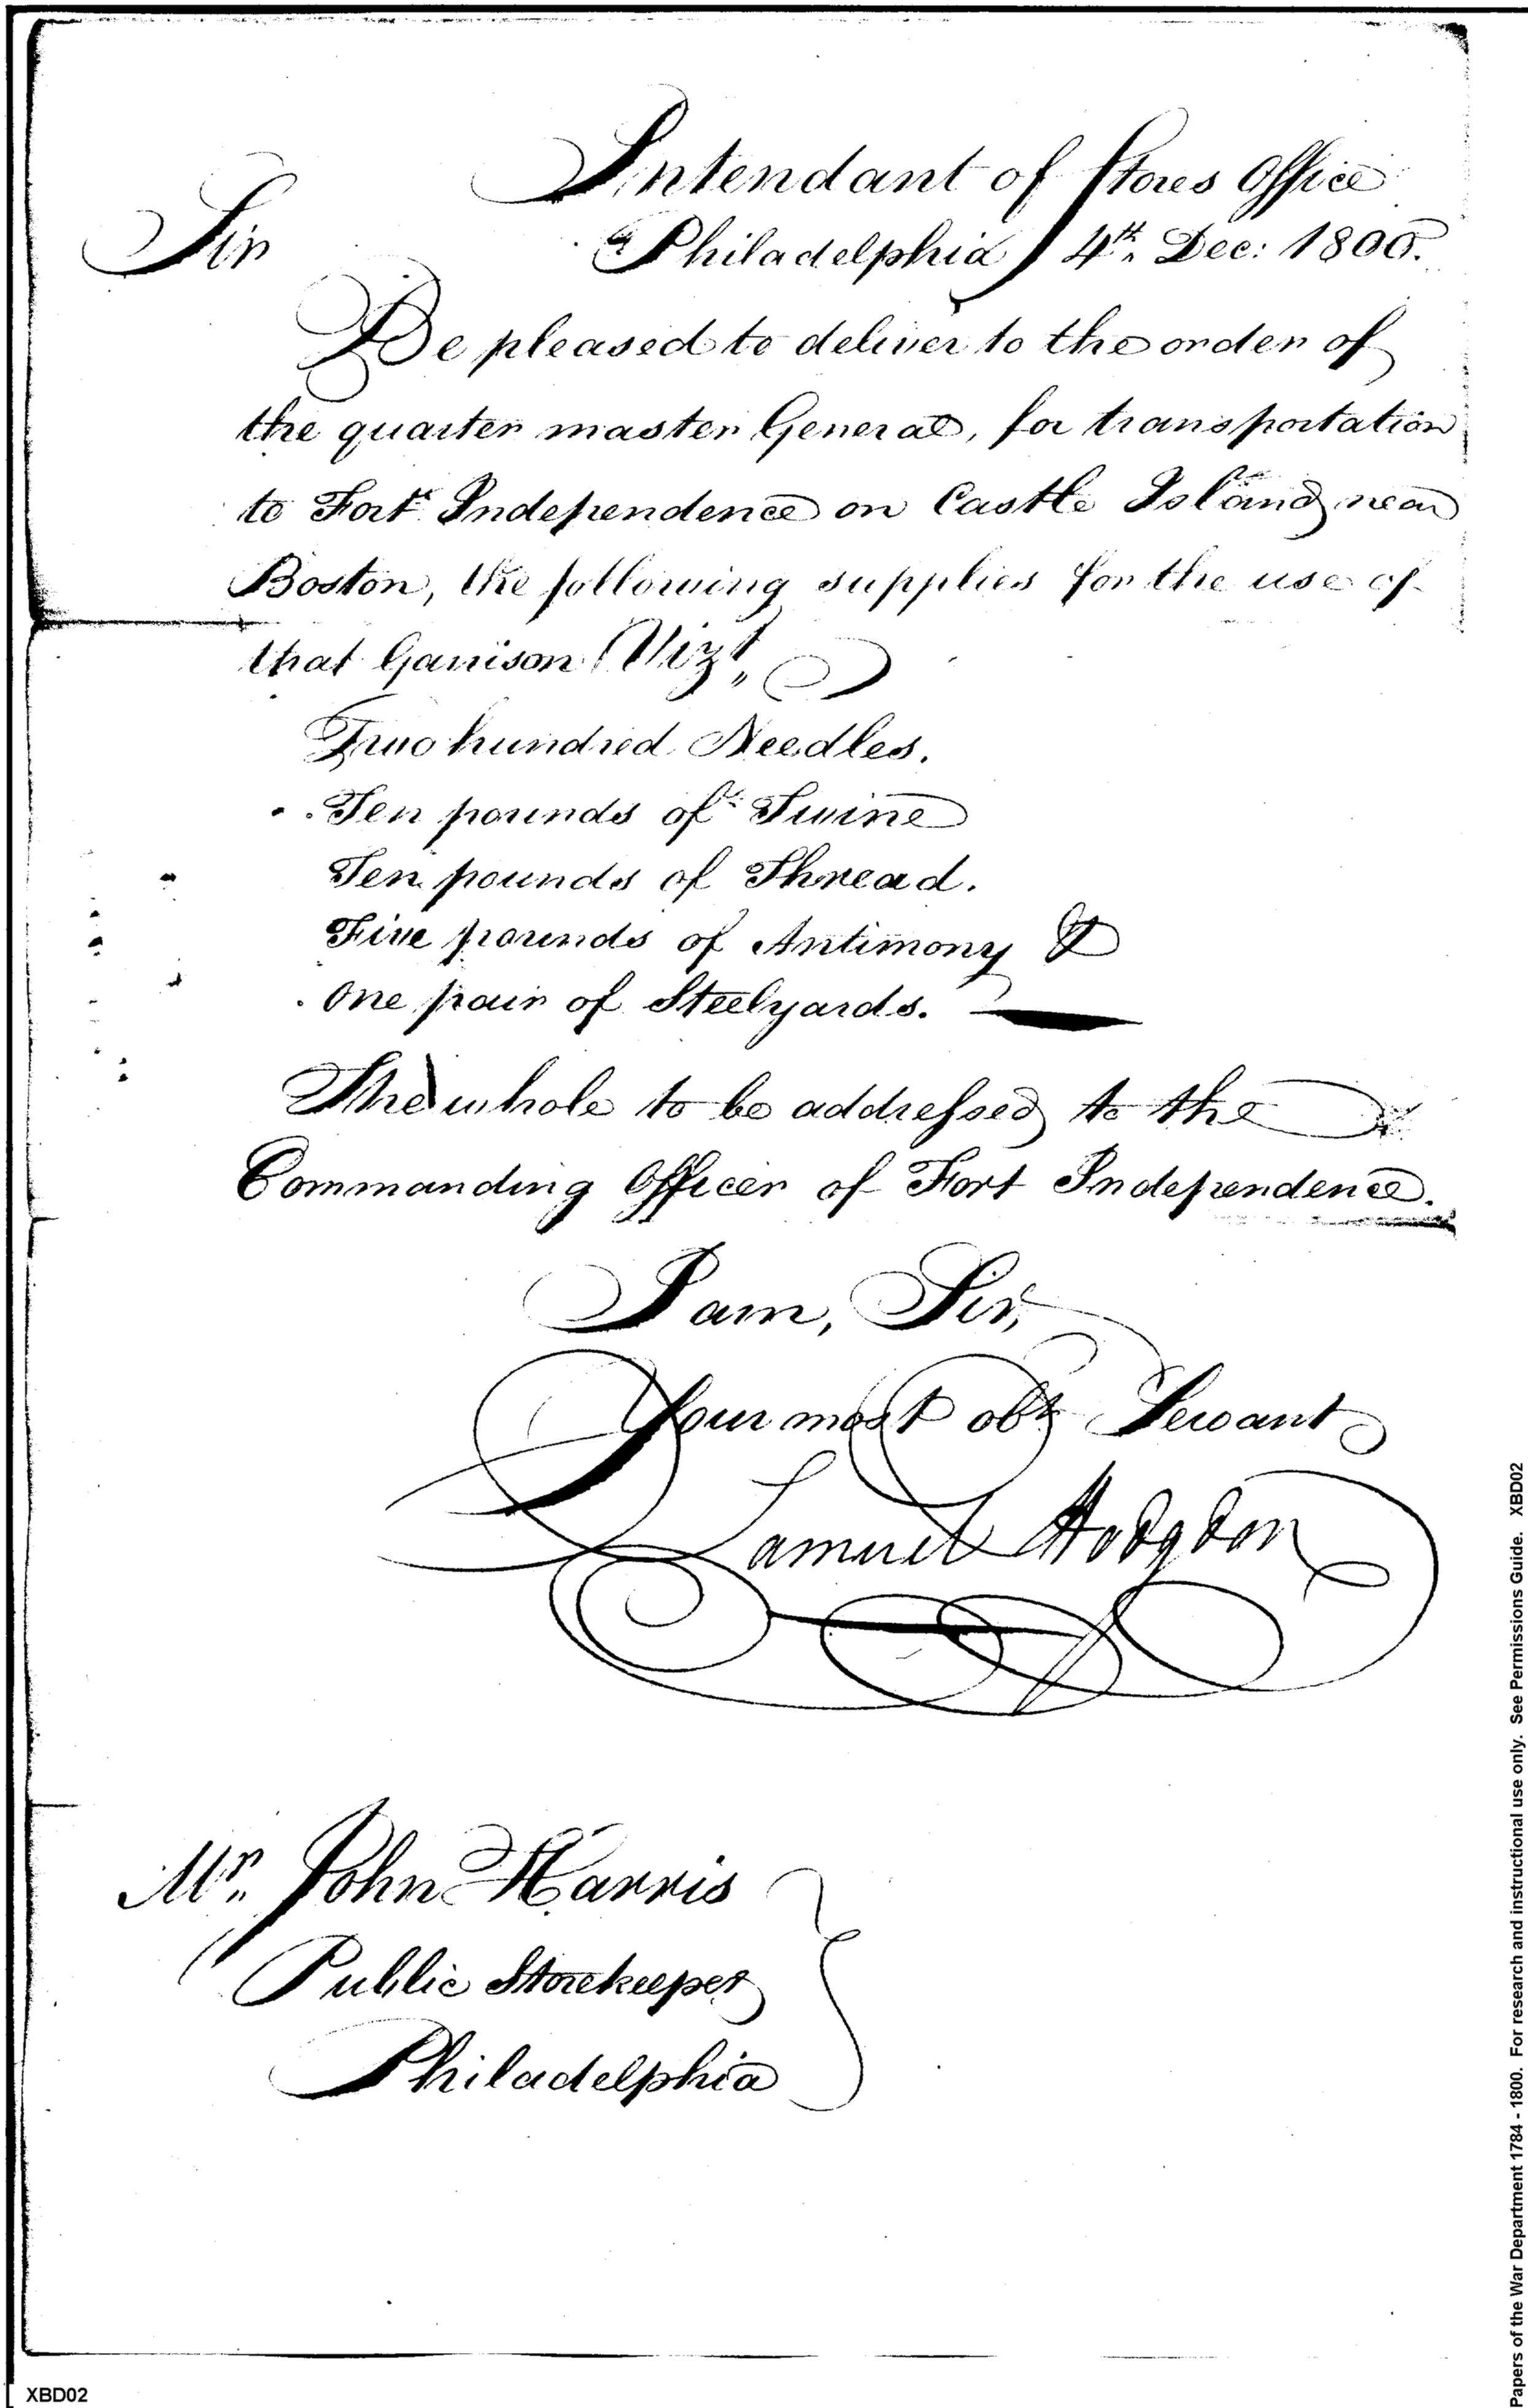 Intendant of Stores Office
Sir
Philadelphia 4th. Dec: 1800.
Be pleased to deliver to the order of
the quarter master General, for transportation
to Fort Independence on Castle Island near
Boston, the following supplies for the use of
that Garrison Vizt,,
Two hundred Needles.
Ten pounds of Twine
Ten pounds of Thread.
Five pounds of Antimony &
One pair of Steelyards.
The whole to be addressed to the
Commanding Officer of Fort Independence.
I am, Sir,
Your most obt Servant
Samuel Hodgdon
Mr. John Harris
Public Storekeeper
Philadelphia
XBD02
Papers of the War Department 1784 - 1800. For research and instructional use only. See Permissions Guide. XBD02